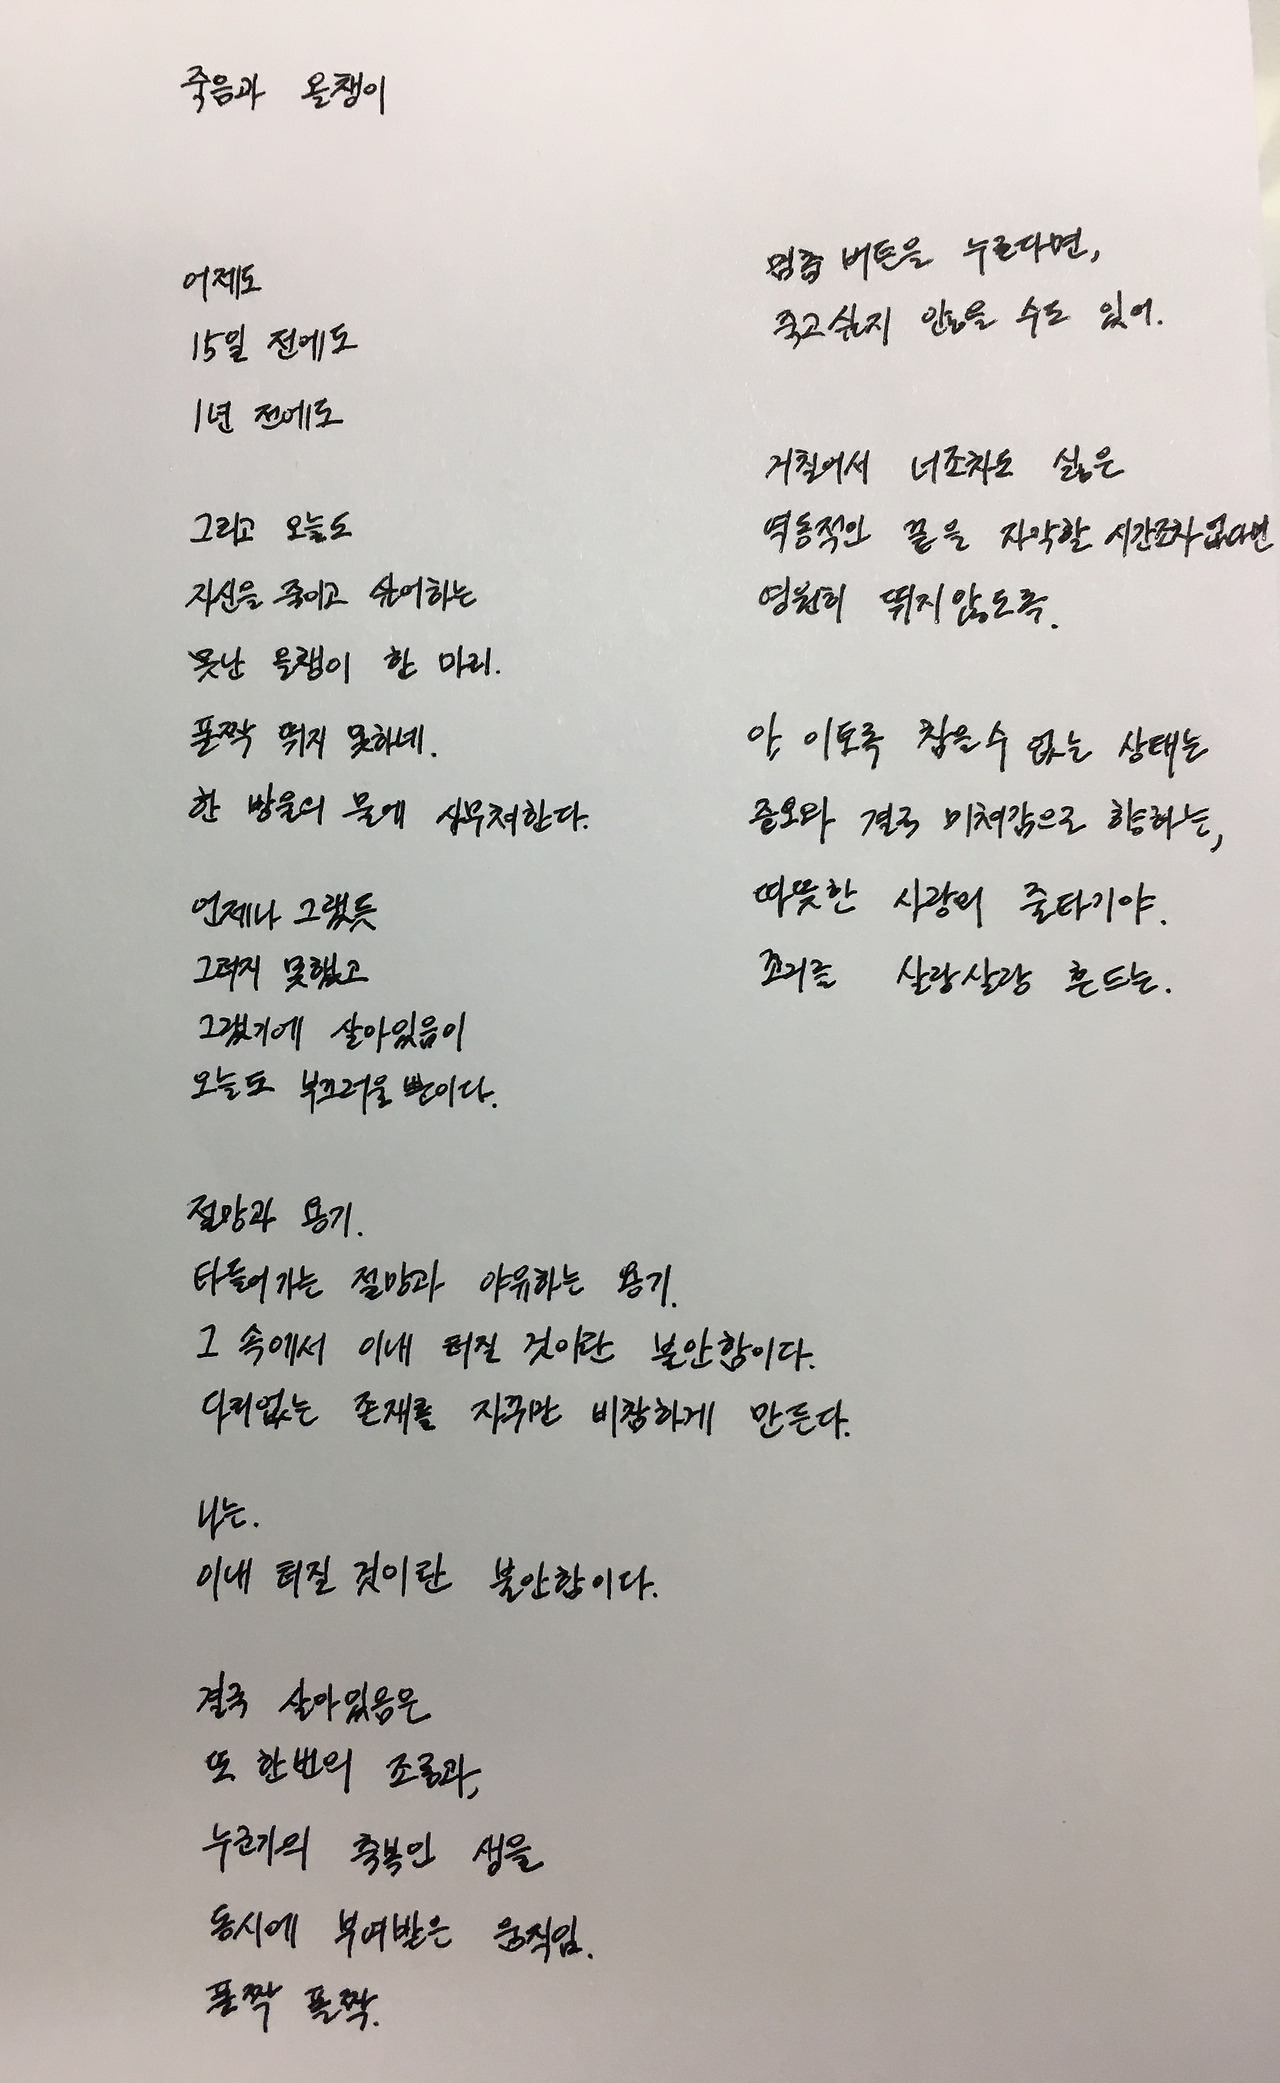 죽음과 올챙이
어제도
15일 전에도
1년 전에도
그리고 오늘도
자신을 죽이고 싶어하는
못난 올챙이 한 마리.
폴짝 뛰지 못하네.
한 방울의 물에 사무쳐한다.
언제나 그랬듯
그러지 못했고
그랬기에 살아있음이
오늘도 부끄러울 뿐이다.
절망과 용기.
타들어가는 절망과 야유하는 용기.
그 속에서 이내 터질 것이란 불안함이다.
다리없는 존재를 자꾸만 비참하게 만든다.
나는.
이내 터질 것이란 불안함이다.
결국 살아있음은
또 한번의 조롱과,
누군가의 축복인 생을
동시에 부여받은 움직임.
폴짝 폴짝.
멈춤 버튼을 누른다면,
죽고싶지 않을 수도 있어.
거칠어서 너조차도 싫은
역동적인 끝을 자악할 시간조차 없다면
영원히 뛰지 않도록.
아, 이토록 참을 수 없는 상태는
증오와 결국 미쳐감으로 향하는,
따뜻한 사랑의 줄타기야.
꼬리를 살랑살랑 흔드는.